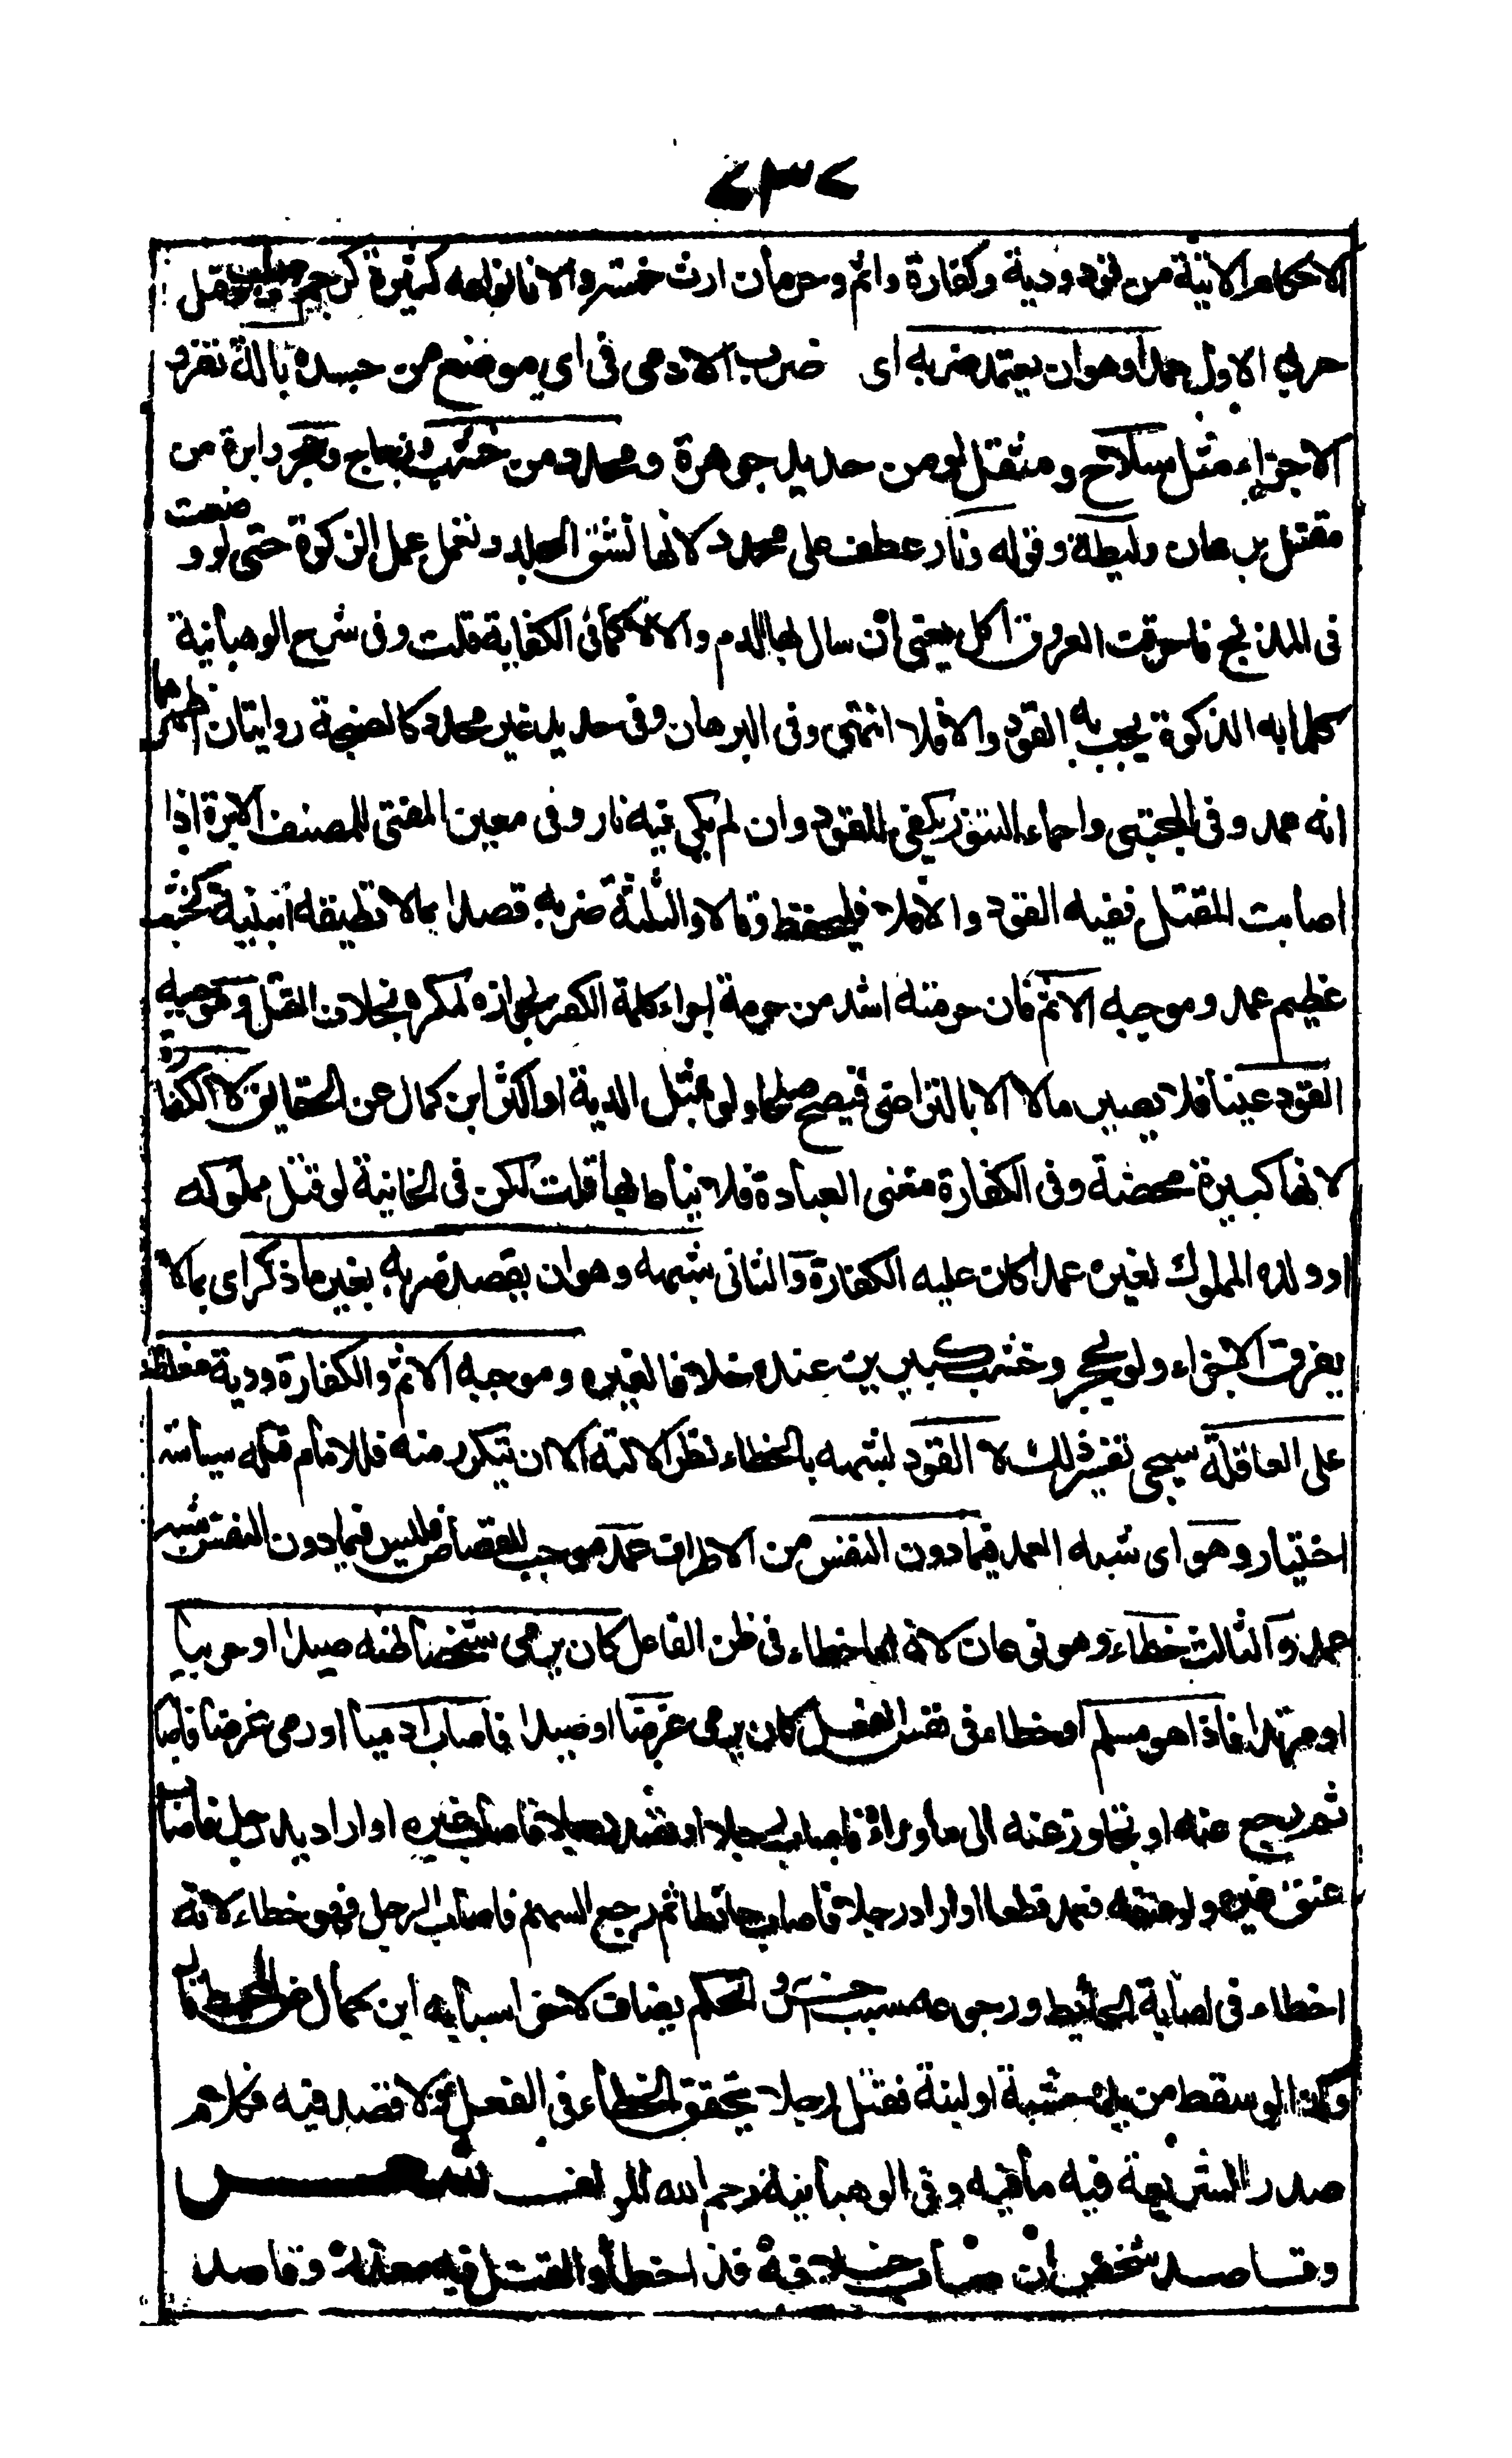 ٧٣٧
الاحكام الاتية من قود ودية وكفارة واثم وحرمان ارث خمسة والا فانواعه كثيرة كرجم وصلب وقتل
حربي الاول عمدا وهو ان يتعمد ضربه اى ضرب الادمى فى اى موضع من جسده بالة تفرق
الاجزاء مثل سلاح ومثقل لو من حديد جوهرة ومحدد من خشب وزجاج وحجر وابرة من
مقتل برهان وليطة وقوله ونار عطف على محدد لانها تشق الجلد وتعمل عمل الذكوة حتى لو وضعت
فى المذبح فاحرقت العروق اكل يعنى ان سال بها الدم والا لا كما فى الكفاية قلت وفى شرح الوهبانية
كلما به الذكوة يجب به القود والا فلا انتهى وفى البرهان وفى حديد غير محدد كالصنجة روايتان اظهرهما
انه عمد وفى المجتبى واحماء التنور يكفى للقود وان لم يكن فيه نار وفى معين المفتى للمصنف الابرة اذا
اصابت المقتل ففيه القود والا فلا فليحفظ وقالا والثلثة ضربه قصدا بما لا تطيقه البنية كخشب
عظيم عمد وموجبه الاثم فان حرمته اشد من حرمة اجراء كلمة الكفر لجوازه لمكره بخلاف القتل وموجبه
القود عينا فلا يصير مالا الا بالتراضى فيصح صلحا ولو بمثل الدية او اكثر ابن كمال عن الحقايق لا الكفارة
لانها كبيرة محضة وفى الكفارة معنى العبادة فلا يناط بها قلت لكن فى الخانية لو قتل مملوكه
او ولده المملوك لغيره عمدا كان عليه الكفارة والثانى شبهه وهو ان يقصد ضربه بغير ما ذكر اى بما لا
يفرق الاجزاء ولو بحجر وخشب كبيرين عنده خلافا لغيره وموجبه الاثم والكفارة ودية مغلظة
على العاقلة سيجى تفسير ذلك لا القود لشبهه بالخطاء نظرا لالته الا ان يتكرر منه فللامام قتله سياسة
اختيار وهو اى شبه العمد فيما دون النفس من الاطراف عمد موجب للقصاص فليس فيما دون النفس شبه
عمد والثالث خطاء وهو نوعان لانه اما خطاء فى ظن الفاعل كان يرمى شخصا ظنه صيدا او حربيا
او مرتدا فاذا هو مسلم او خطاء فى نفس الفعل كان يرمى غرضا او صيدا فاصاب ادميا او رمى غرضا فاصابه
ثم رجع عنه او تجاوز عنه الى ما وراءه فاصاب رجلا او قصد رجلا فاصاب غيره او اراد يد رجل فاصاب
عنق غيره ولو عنقه فعمد قطعا او اراد رجلا فاصاب حائطا ثم رجع السهم فاصاب الرجل فهو خطاء لانه
اخطاء فى اصابة الحائط ورجوعه سبب اخر والحكم يضاف لاخر اسبابه ابن كمال عن المحيط قال
وكذا لو سقط من يده خشبة او لبنة فقتل رجلا يتحقق الخطاء فى الفعل ولا قصد فيه فكلام
صدر الشريعة فيه ما فيه وفى الوهبانية رحم الله المولف شعر
وقاصد شخص ان اصاب خلافه فذا اخطأ والقتل فيه معذر وقاصد